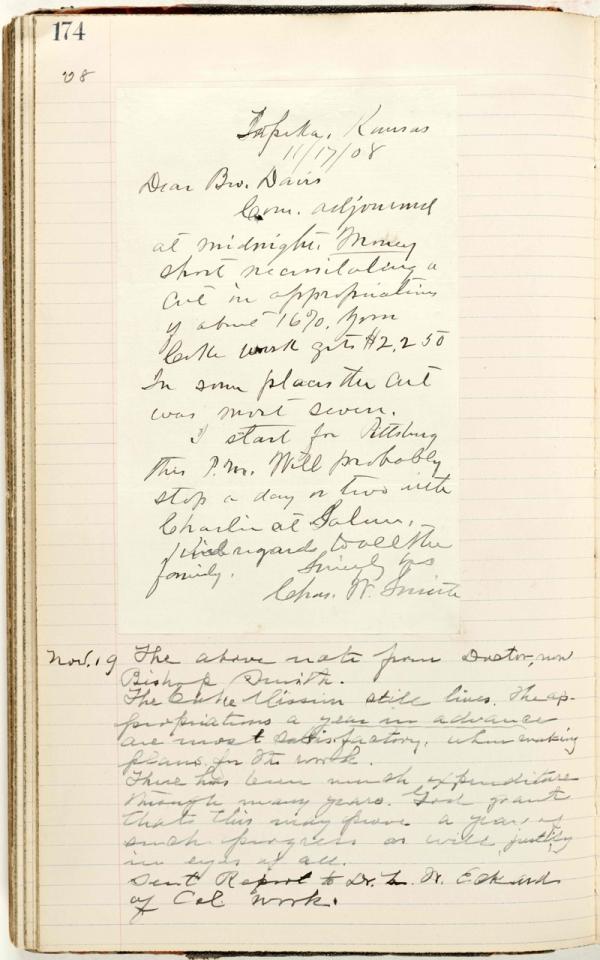 174
08
Topeka, Kansas
11/17/08
Dear Bro. Davis
Com. adjourned
at midnight. Money
short necessitating a
cut in appropriations
of about 16%. Your
Coke work gets $2,250
In some places the cut
was most severe.
I start for Pittsburg
this P.M. Will probably
stop a day or two with
Charlie at Salem,
kind regards to all the
family. Sincerely yrs
Chas. W. Smith
Nov. 19 The above note from Doctor, now
Bishop Smith.
The Coke Mission still lives. The ap-
propriations a year in advance
are most satisfactory, when making
plans for the work.
There has been much expenditure
through many years. God grant
that this may prove a year of
such progress as will justify
in eyes of all.
Sent Report to Dr. W. Eckard
of Col Work.